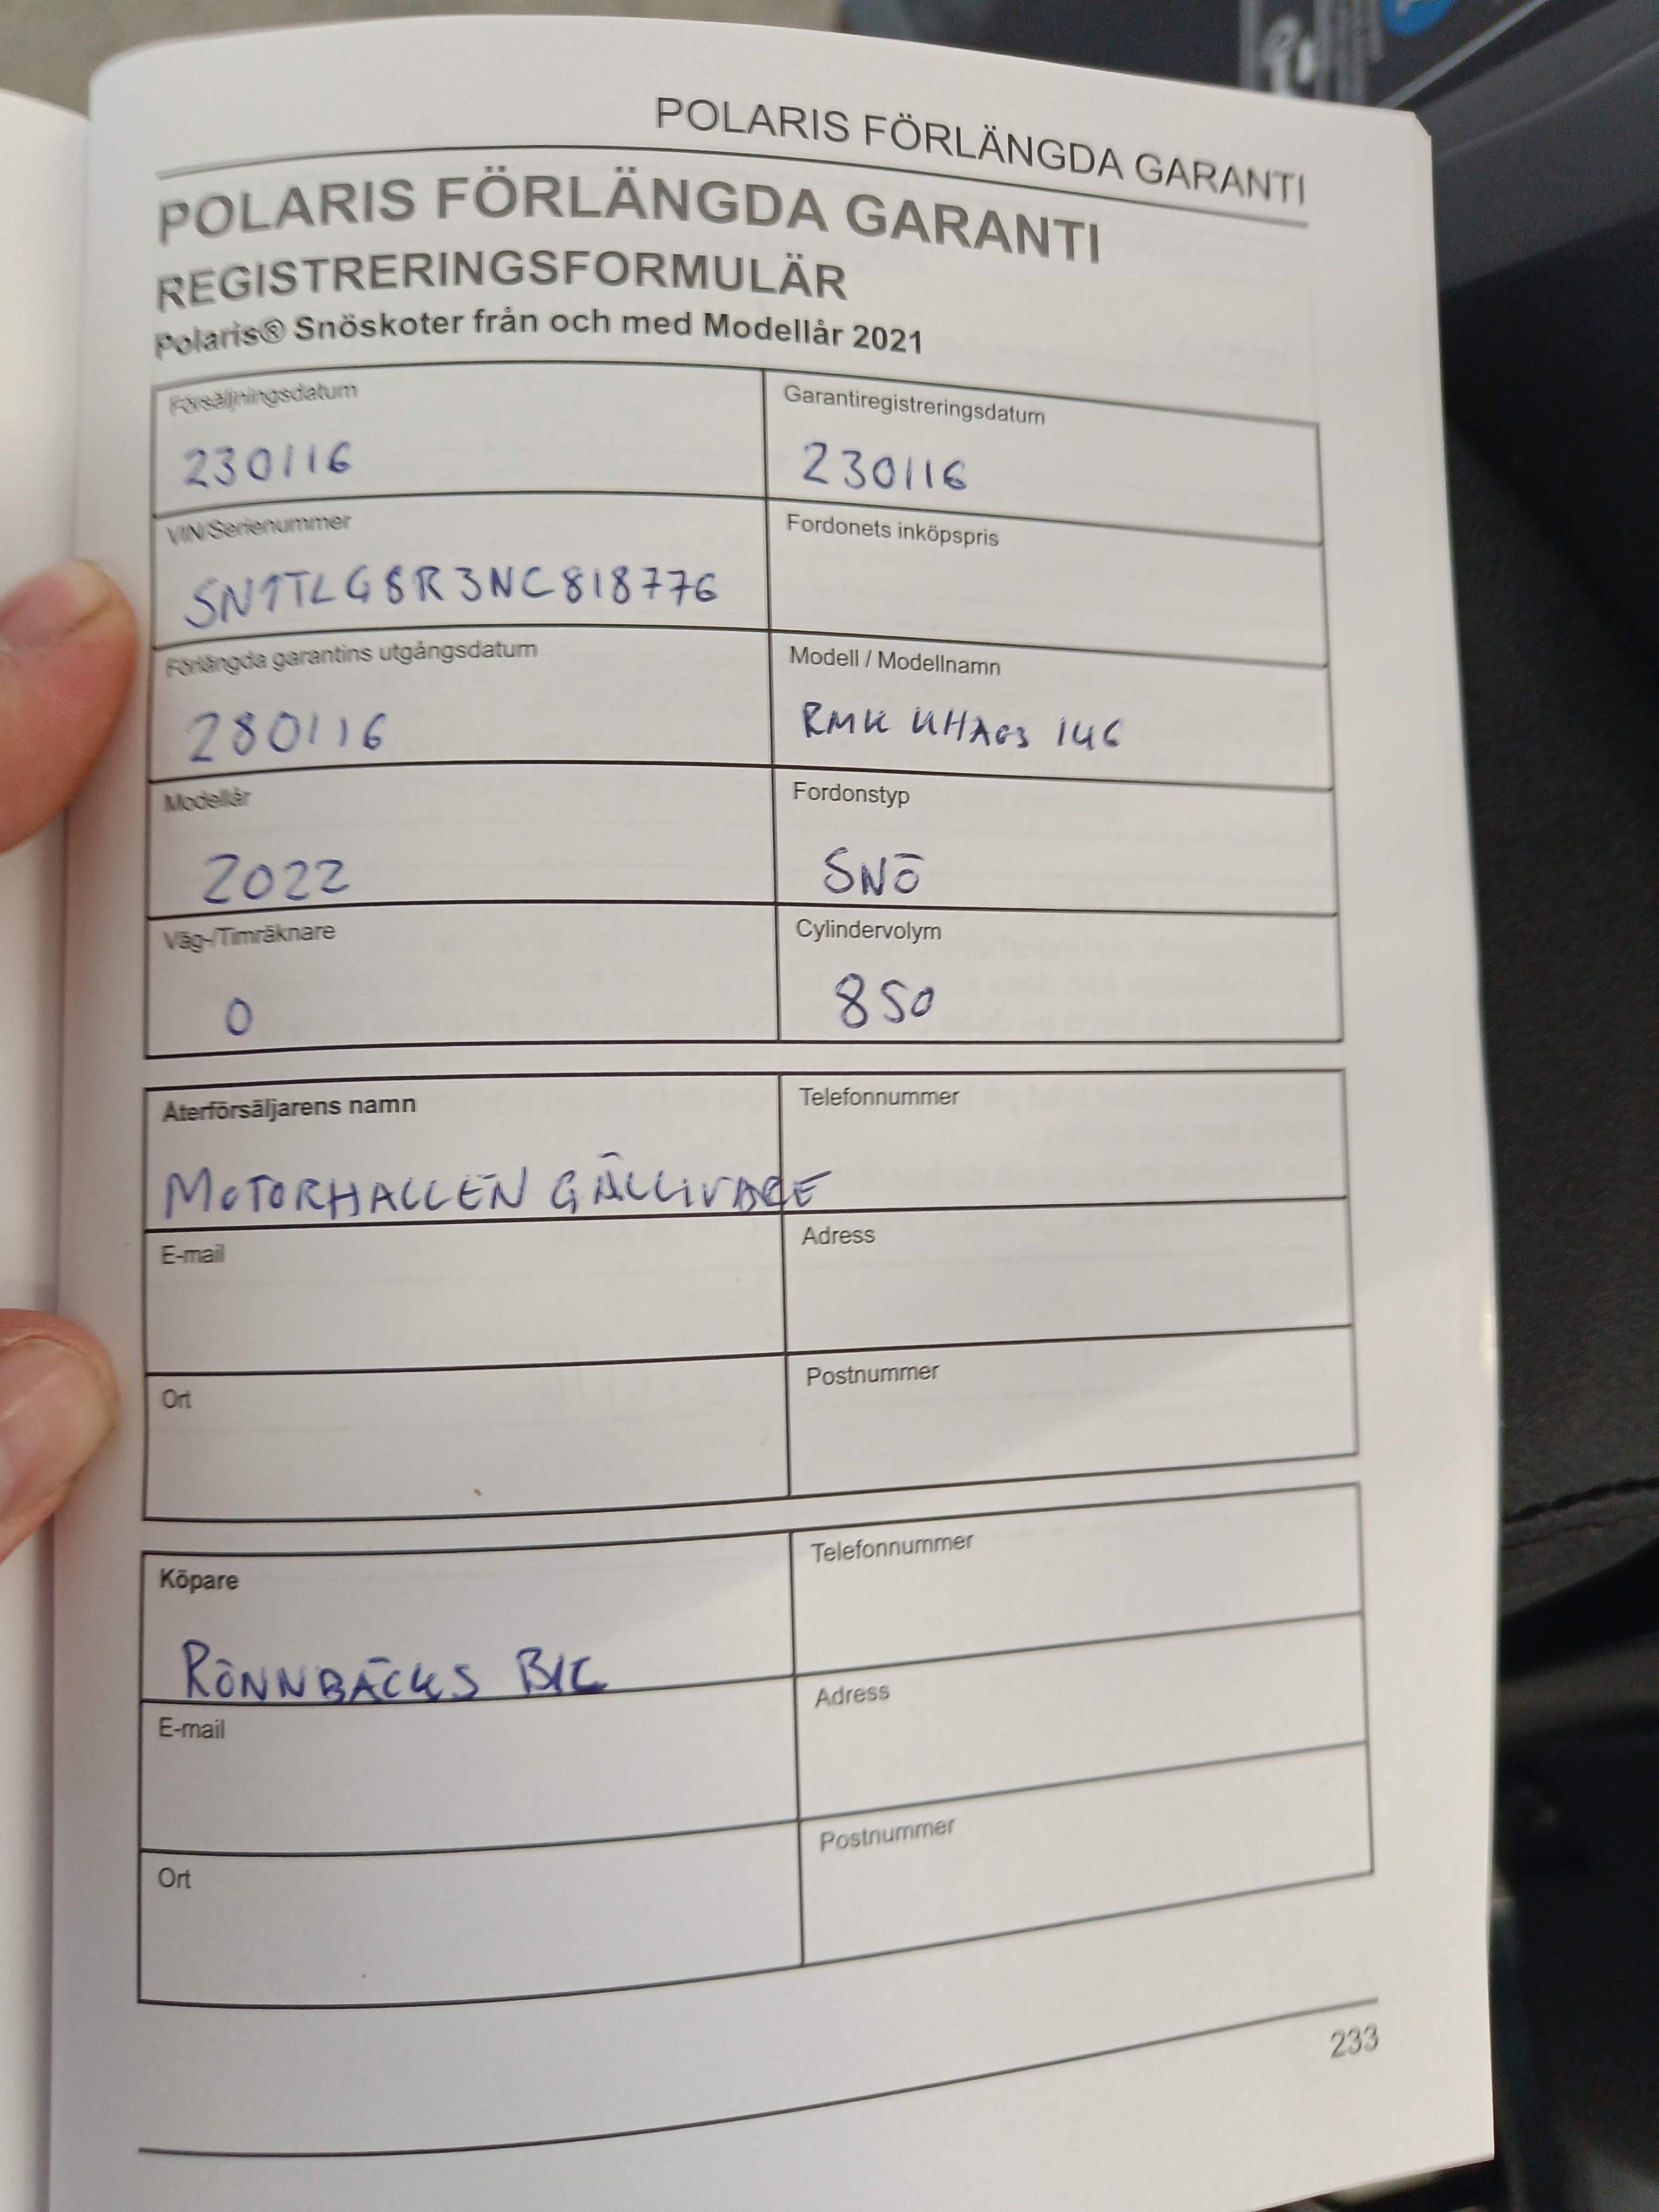 POLARIS FÖRLÄNGDA GARANTI
POLARIS FÖRLÄNGDA GARANTI
REGISTRERINGSFORMULÄR
Polaris® Snöskoter från och med Modellår 2021
Försäljningsdatum
230116
Garantiregistreringsdatum
230116
VIN/Serienummer
SN1TLG8R3NC818776
Fordonets inköpspris
Förlängda garantins utgångsdatum
280116
Modell / Modellnamn
RMK KHAOS 146
Modellår
2022
Fordonstyp
SNÖ
Väg-/Timräknare
0
Cylindervolym
850
Återförsäljarens namn
MOTORHALLEN GÄLLIVARE
Telefonnummer
E-mail
Adress
Ort
Postnummer
Köpare
RÖNNBÄCKS
Telefonnummer
E-mail
Adress
Ort
Postnummer
233